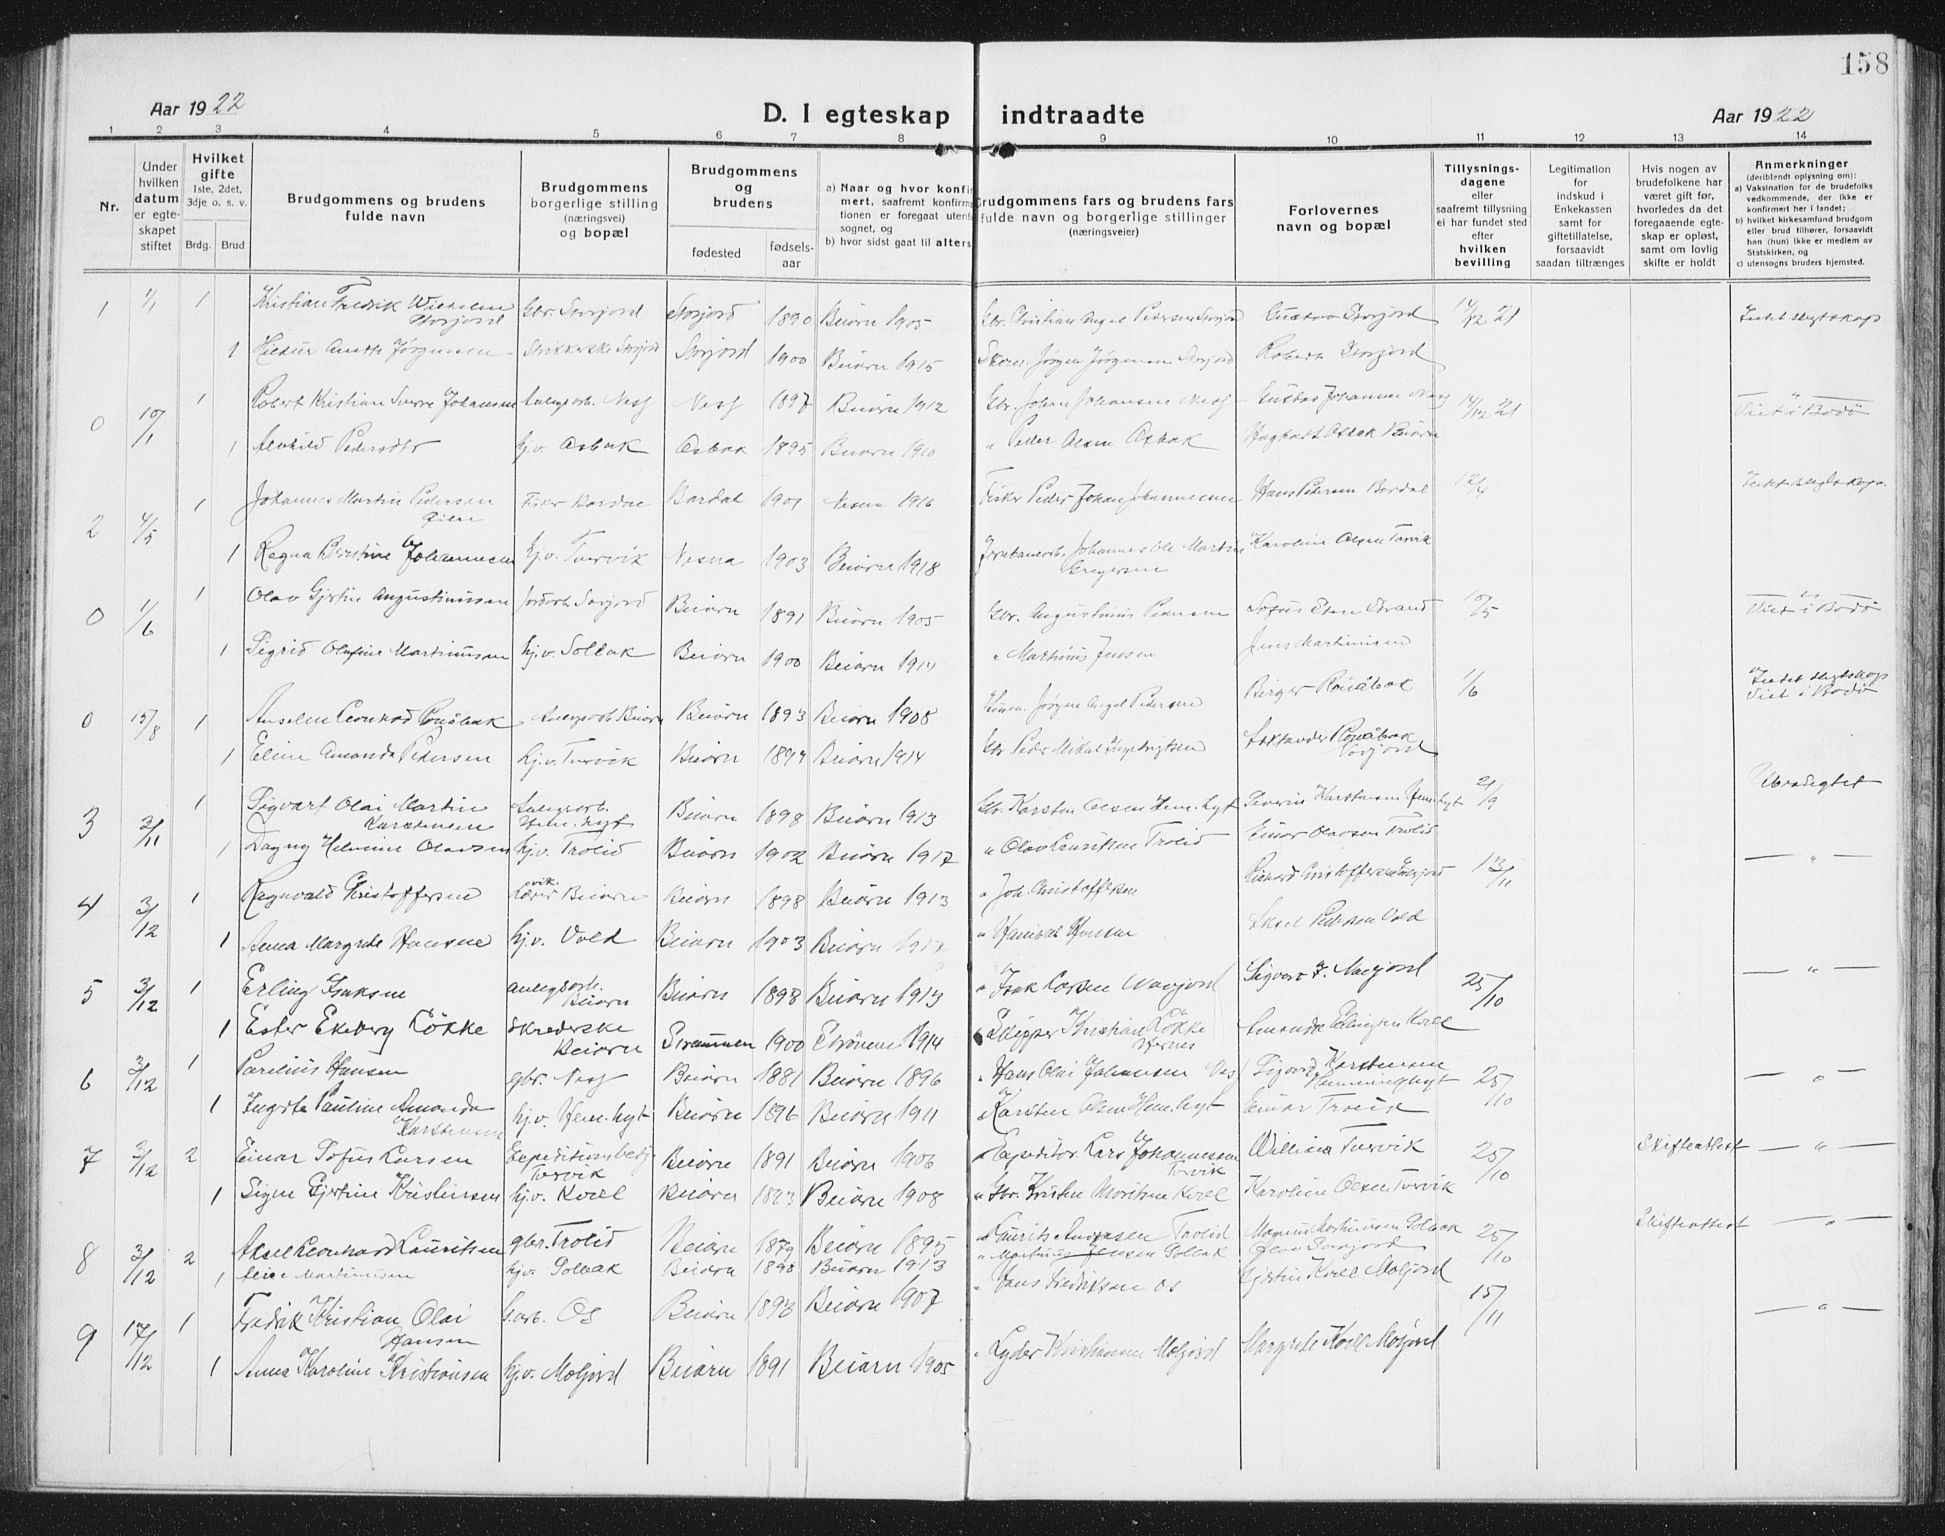 158
Aar 1922
D. I egteskap indtraadte
Aar 1922
1 2 3 4 5 6 7 8 9 10 11 12 13 14
Nr.
Under hvilken datum er egteskapet stiftet
Hvilket gifte 1ste, 2det, 3dje o. s. v.
Brdg. Brud
Brudgommens og brudens fulde navn
Brudgommens borgerlige stilling (næringsvei) og bopæl
Brudgommens og brudens
fødested
fødselsaar
a) Naar og hvor konfirmert, saafremt konfirmationen er foregaat utenfor sognet, og
b) hvor sidst gaat til alters
Brudgommens fars og brudens fars fulde navn og borgerlige stillinger (næringsveier)
Forlovernes navn og bopæl
Tillysningsdagene eller saafremt tillysning ei har fundet sted efter hvilken bevilling
Legitimation for indskud i Enkekassen samt for giftetillatelse, forsaavidt saadan tiltrænges
Hvis nogen av brudefolkene har været gift før, hvorledes da det foregaaende egteskap er opløst, samt om lovlig skifte er holdt
Anmerkninger (deriblendt oplysning om):
a) Vaksination for de brudefolks vedkommende, der ikke er konfirmert her i landet;
b) hvilket kirkesamfund brudgom eller brud tilhører, forsaavidt han (hun) ikke er medlem av Statskirken, og
c) utensogns bruders hjemsted.
1 1/1 1 Kristian Fredrik Wilhelm Storjord Gbr. Storjord Storjord 1890 Beiarn 1905 Gbr. Christian Angel Pedersen Storjord Gustav Storjord 14/12 21 Intet slegtskap
1 Hildur Anette Jørgensen Strikkerske Storjord Storjord 1900 Beiarn 1915 Jørgen Jørgensen Storjord Robert Storjord
0 10/1 1 Robert Kristian Sverre Johansen Anlegsarb. Ness Ness 1897 Beiarn 1912 Gbr. Johan Johansen Ness Gustav Johansen 14/12 21 — " — Viet i Bodø
1 Alvhild Pedersdtr hj.v. Osbak Osbak 1895 Beiarn 1910 " Peder Olsen Osbak Hagbart Osbak Beiarn
2 4/5 1 Johannes Martin Pedersen Fisker Bardal Bardal 1901 Nesna 1916 Fisker Peder Johan Johannesen Hans Pedersen Bardal 12/4 Intet slegtskap.
1 Ragna Johannesen hj.v. Tvervik Nesna 1903 Beiarn 1918 Johannes Ole Martin Gregersen Karoline Olsen Tvervik
0 1/6 1 Olav Gjertin Augustinussen Jordarb. Storjord Beiarn 1891 Beiarn 1905 Gbr. Augustinus Pedersen Sofus Strand 10/5 — " — Viet i Bodø
1 Sigrid Olufine Martinussen hj.v. Solbak Beiarn 1900 Beiarn 1914 " Martinus Jensen Jens Martinussen
0 15/8 1 Anselm Leonhard Anlegsarb. Beiarn Beiarn 1893 Beiarn 1908 Jørgen Angel Pedersen Birger 1/6 Intet slegtskap Viet i Bodø
1 Eline Amanda Pedersen hj.v. Tvervik Beiarn 1899 Beiarn 1914 Gbr. Peder Mikal Storjord
3 3/11 1 Sigvart Olai Martin Karstensen Anlegsarb. Hem.hyt Beiarn 1898 Beiarn 1913 Gbr. Karsten Olsen Hem.hyt Severin Karstensen Hem.hyt 21/9 Ubeslegtet
1 Dagny Helmine Olavsen hj.v. Trolid Beiarn 1902 Beiarn 1917 " Olav Lauritsen Trolid Einar Olavsen Trolid
4 3/12 1 Ragnvald Kristoffersen vik. Lærer Beiarn Beiarn 1898 Beiarn 1913 " Joh. Christoffersen Rickard Cristoffersen 13/11 — " —
1 Anna Margrete Hansen hj.v. Vold Beiarn 1903 Beiarn " Hanibal Hansen Aksel Pedersen Vold
5 3/12 1 Erling Isaksen anlegsarb. Beiarn Beiarn 1898 Beiarn 1913 " Isak Larsen Sigvard J. 25/10 — " —
1 Ester Ekeberg Løkke Skrederske Beiarn 1900 1914 Skipper Kristian Løkke Amanda Kvæl
6 3/12 1 Parelius Hansen gbr. Ness Beiarn 1881 Beiarn 1896 " Hans Olai Johansen Sigvard Karstensen Hemminghyt 25/10 — " —
1 Ingrta Pauline Amanda Karstensen hj.v. Hem.hyt Beiarn 1896 Beiarn 1911 " Karsten Olsen Hem.hyt Einar Trolid
7 3/12 2 Einar Sofus Larsen Expeditionsbetj. Tvervik Beiarn 1891 Beiarn 1906 " Expeditør Lars Johannesen Tvervik William Tvervik 25/10 Skifteattest — " —
1 Signe Gjertine Kristensen hj.v. Kvæl Beiarn 1893 Beiarn 1908 " Gbr. Kristen Moritsen Kvæl Karoline Olsen Tvervik
8 3/12 2 Aksel Leonhard Lauritsen gbr. Trolid Beiarn 1879 Beiarn 1895 " Laurits Trolid Magnus Martinussen Solbak 25/10 Skifteattest — " —
1 Alice Martinussen hj.v. Solbak Beiarn 1898 Beiarn 1913 " Martinus Jensen Solbak
9 17/12 1 Fredrik Kristian Olai Hansen Os Beiarn 1893 Beiarn 1907 " Hans Fredriksen Os Gjertin Kvæl Moljord 15/11 — " —
1 Anna Karoline Kristiansen hj.v. Moljord Beiarn 1891 Beiarn 1905 " Lyder Kristiansen Moljord Margrete Kvæl Moljord